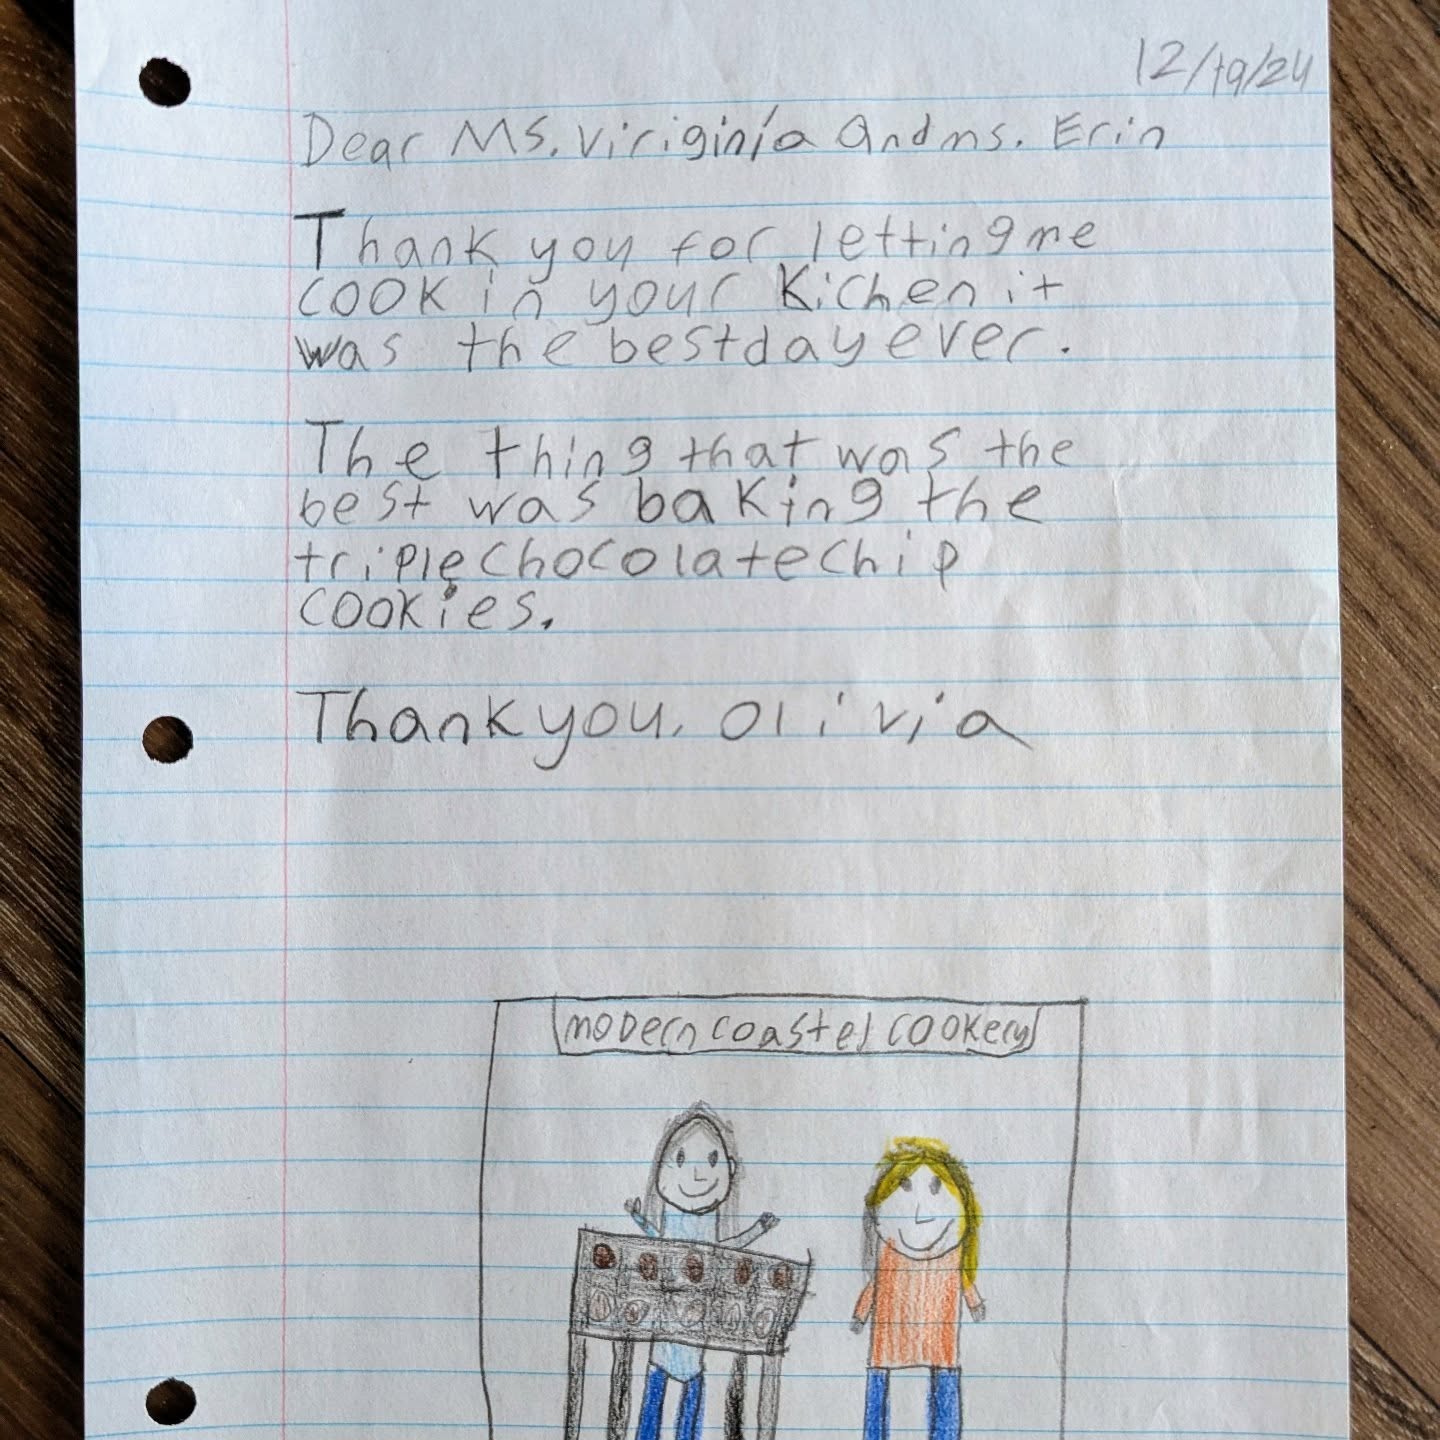 12/19/24
Dear Ms. Viriginia and ms. Erin
Thank you for letting me
cook in your Kichen it
was the best day ever.
The thing that was the
best was baking the
triple chocolate chip
cookies.
Thank you, Olivia
modern coastel cookery